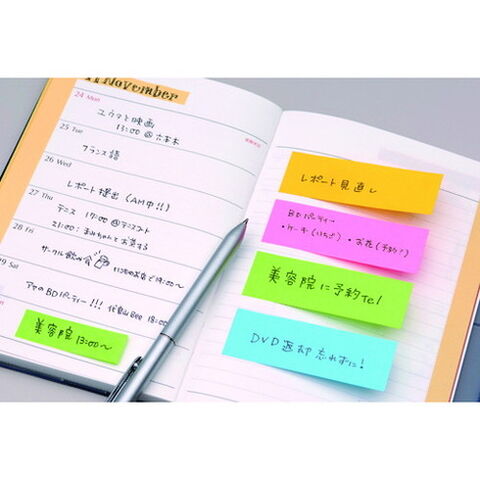 11 November
24 Mon
ユウマと映画
13:00 @六本木
25 Tue
フランス語
26 Wed
レポート提出 (AM中!!)
27 Thu
テニス 17:00 @テニスコート
21:00: まみちゃんとお茶する
28 Fri
サークル飲み会
29 Sat
アヤのBDパーティー!!! 代官山Bee 18:00
美容院 13:00〜
レポート見直し
BDパーティー
・ケーキ(いちご) ・お花(予約!)
美容院に予約tel!
DVD返却忘れずに!